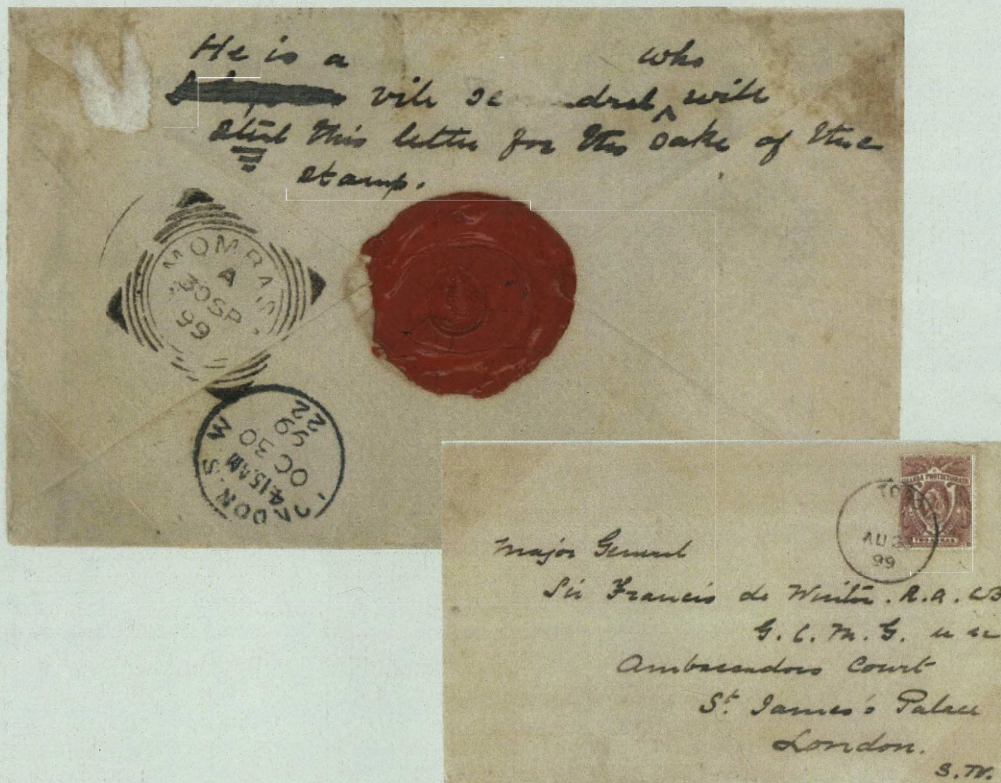 He is a who
vile sc ndrel ^ will
steal this letter for the sake of the
stamp.
MOMBASA
A
30 SP
99
LONDON.S.W
4.15AM
OC 30
99
22
UGANDA PROTECTORATE
TWO ANNAS
TO
AU 3
99
Major General
Sir Francis de Winton. R.A. CB
G.C.M.G.
Ambassadors Court
St. James's Palace
London.
S.W.